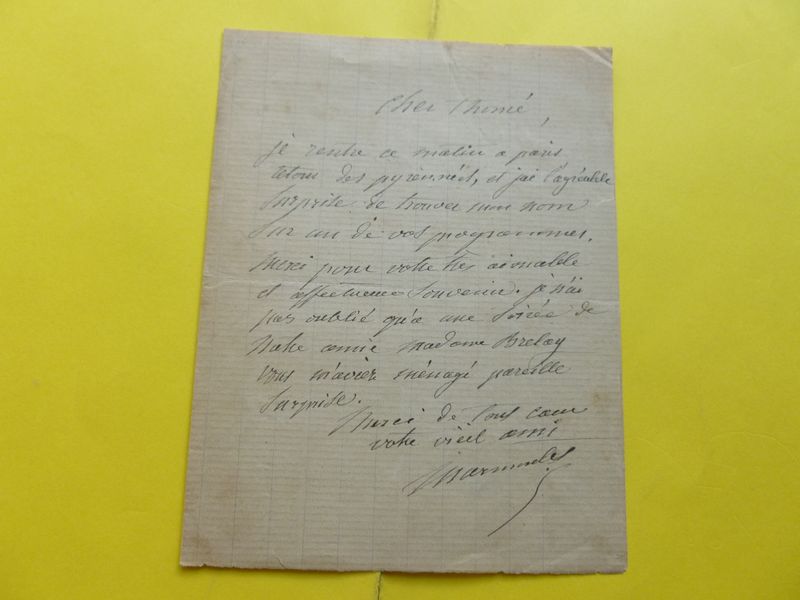 Cher Thomé,
je rentre ce matin a paris
retour des pyrénnées, et j'ai l'agréable
surprise de trouver mon nom
sur un de vos programmes.
Merci pour votre très aimable
et affectueux souvenir. je n'ai
pas oublié qu'a une soirée de
Notre amie madame Brelay
vous m'aviez ménagé pareille
surprise.
Merci de tout cœur
votre vieil ami